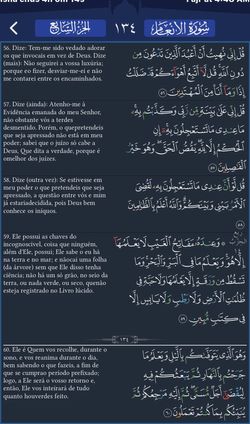 سورة الأنعام ١٣٤ الجزء السابع
56. Dize: Tem-me sido vedado adorar
os que invocais em vez de Deus. Dize
(mais): Não seguirei a vossa luxúria;
porque co fizer, desviar-me-ei e não
me contarei entre os encaminhados.
قُلْ إِنِّي نُهِيتُ أَنْ أَعْبُدَ الَّذِينَ تَدْعُونَ مِن
دُونِ اللَّهِ قُل لَّا أَتَّبِعُ أَهْوَاءَكُمْ قَدْ ضَلَلْتُ
إِذًا وَمَا أَنَا مِنَ الْمُهْتَدِينَ ٥٦
57. Dize (ainda): Atenho-me à
Evidência emanada do meu Senhor,
não obstante vós a terdes
desmentido. Porém, o quepretendeis
que seja apressado não está em meu
poder; sabei que o juízo só cabe a
Deus, Que dita a verdade, porque é
omelhor dos juízes.
قُلْ إِنِّي عَلَىٰ بَيِّنَةٍ مِّن رَّبِّي وَكَذَّبْتُم بِهِ
مَا عِندِي مَا تَسْتَعْجِلُونَ بِهِ إِنِ
الْحُكْمُ إِلَّا لِلَّهِ يَقُصُّ الْحَقَّ وَهُوَ خَيْرُ
الْفَاصِلِينَ ٥٧
58. Dize (outra vez): Se estivesse em
meu poder o que pretendeis que seja
apressado, a questão entre vós e mim
já estariadecidida, pois Deus bem
conhece os iníquos.
قُل لَّوْ أَنَّ عِندِي مَا تَسْتَعْجِلُونَ بِهِ لَقُضِيَ
الْأَمْرُ بَيْنِي وَبَيْنَكُمْ وَاللَّهُ أَعْلَمُ بِالظَّالِمِينَ
٥٨
59. Ele possui as chaves do
incognoscível, coisa que ninguém,
além d'Ele, possui; Ele sabe o eu há
na terra e no mar; e nãocai uma folha
(da árvore) sem que Ele disso tenha
ciência; não há um só grão, no seio da
terra, ou nada verde, ou seco, quenão
esteja registrado no Livro lúcido.
وَعِندَهُ مَفَاتِحُ الْغَيْبِ لَا يَعْلَمُهَا
إِلَّا هُوَ وَيَعْلَمُ مَا فِي الْبَرِّ وَالْبَحْرِ وَمَا
تَسْقُطُ مِن وَرَقَةٍ إِلَّا يَعْلَمُهَا وَلَا حَبَّةٍ فِي
ظُلُمَاتِ الْأَرْضِ وَلَا رَطْبٍ وَلَا يَابِسٍ إِلَّا
فِي كِتَابٍ مُّبِينٍ ٥٩
١٣٤
60. Ele é Quem vos recolhe, durante o
sono, e vos reanima durante o dia,
bem sabendo o que fazeis, a fim de
que se cumpra período prefixado;
logo, a Ele será o vosso retorno e,
então, Ele vos inteirará de tudo
quanto houverdes feito.
وَهُوَ الَّذِي يَتَوَفَّاكُم بِاللَّيْلِ وَيَعْلَمُ مَا
جَرَحْتُم بِالنَّهَارِ ثُمَّ يَبْعَثُكُمْ فِيهِ
لِيُقْضَىٰ أَجَلٌ مُّسَمًّى ثُمَّ إِلَيْهِ مَرْجِعُكُمْ ثُمَّ
يُنَبِّئُكُم بِمَا كُنتُمْ تَعْمَلُونَ ٦٠